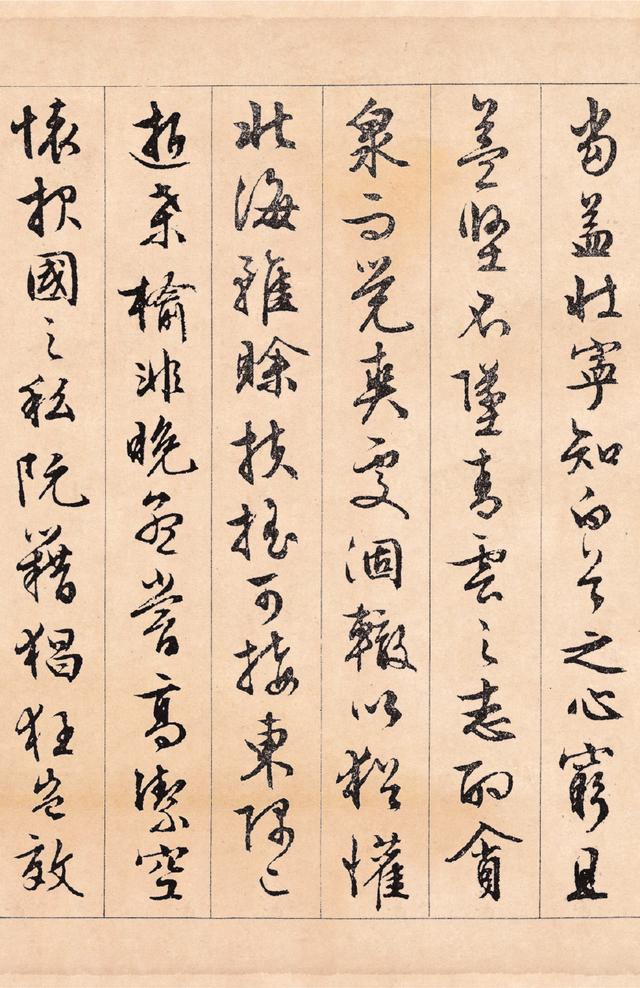 當益壯寧知白首之心窮且
益堅不墜青雲之志酌貪
泉而覺爽處涸轍以猶懽
北海雖賒扶搖可接東隅已
逝桑榆非晚孟嘗高潔空
懷報國之私阮籍猖狂豈效